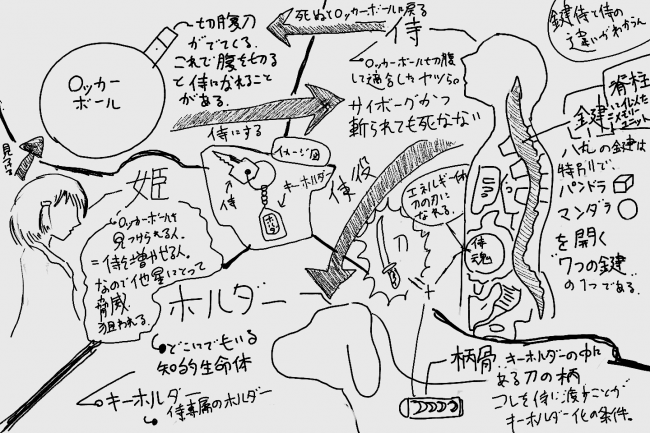 切腹刀
がでてくる.
これで腹を切る
と侍になれること
がある.
ロッカー
ボール
死ぬとロッカーボールに戻る
侍
ロッカーボールで切腹
して適合したヤツら。
サイボーグかつ
斬られても死なない
鍵侍と侍の
違いがわからん
脊柱
鍵
ハチの鍵は
特別で、
パンドラ
マンダラ
を開く
"7つの鍵"
の1つである.
侍にする
イメージ図
侍
キーホルダー
使役
エネルギー体
刀の刃に
なれる.
刀
侍魂
姫
ロッカーボールを
見つけられる人.
=侍を増やせる人。
なので他星にとって
脅威
狙われる.
ホルダー
どこにでもいる
知的生命体
キーホルダー
侍専属のホルダー
柄骨
キーホルダーの中に
ある刀の柄
コレを侍に渡すことが
キーホルダー化の条件。